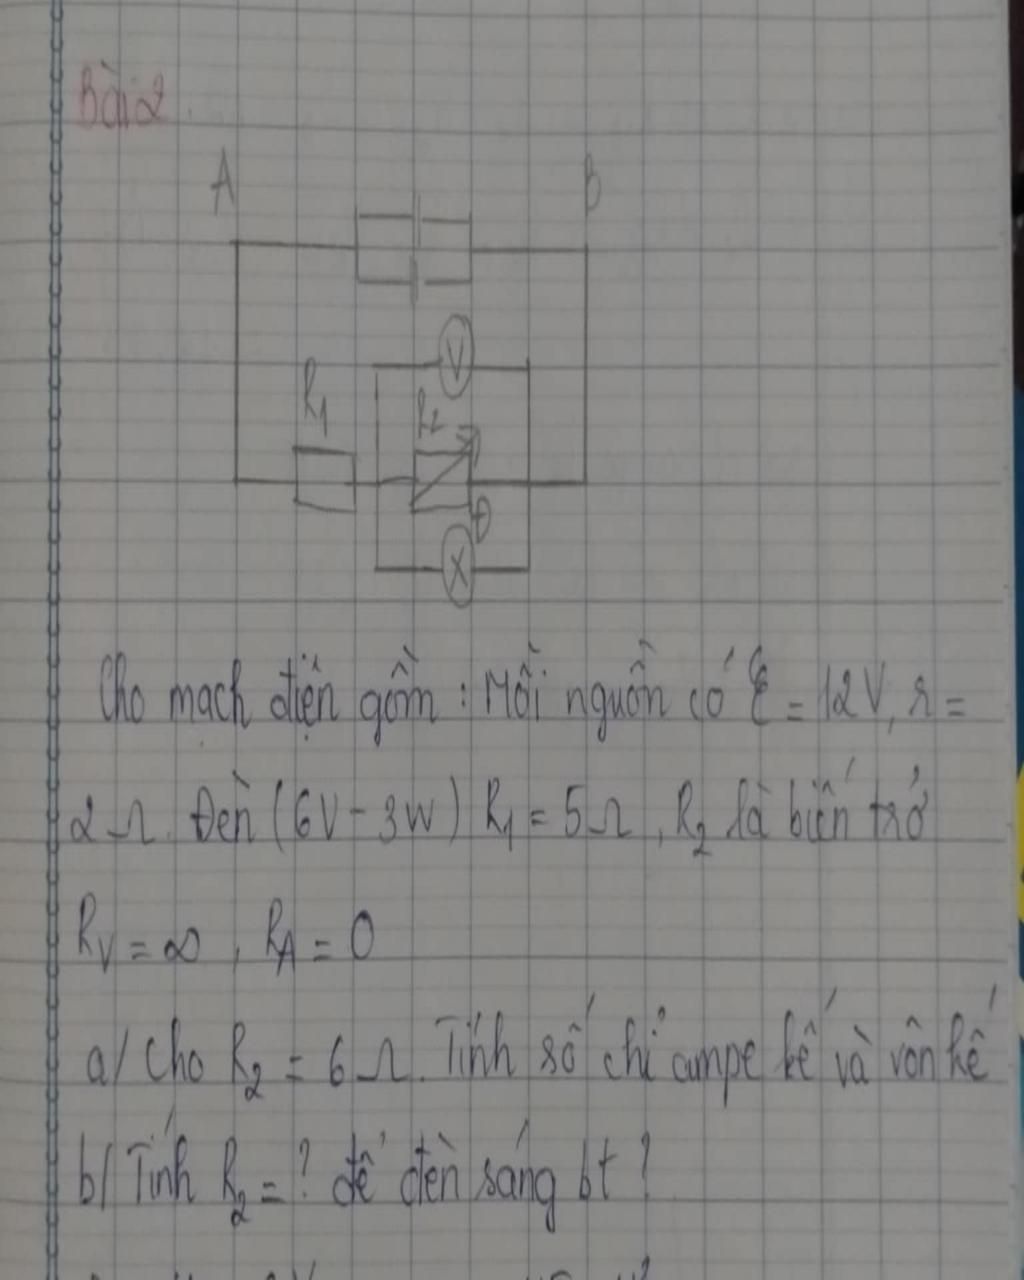 Bài 2.
A B
V
R1 R2
Đ
X
Cho mạch điện gồm : Mỗi nguồn có ℰ = 12V, r =
2Ω. Đèn (6V - 3W) R1 = 5Ω, R2 là biến trở
RV = ∞, RA = 0
a/ Cho R2 = 6Ω. Tính số chỉ ampe kế và vôn kế
b/ Tính R2 = ? để đèn sáng bt ?